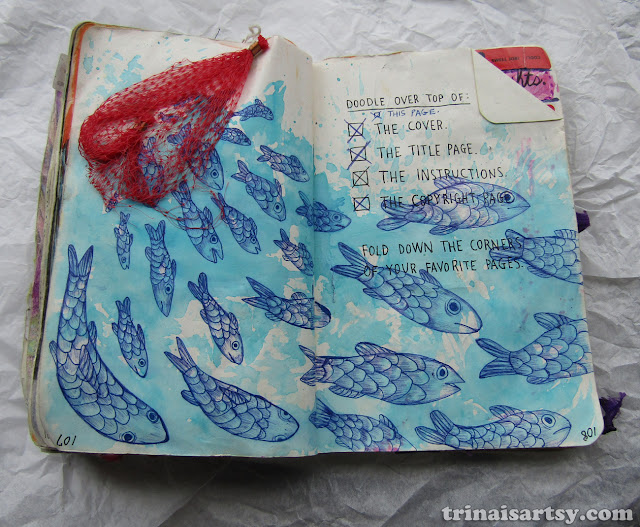 DOODLE OVER TOP OF:
THIS PAGE.
THE COVER.
THE TITLE PAGE.
THE INSTRUCTIONS.
THE COPYRIGHT PAGE.
FOLD DOWN THE CORNERS
OF YOUR FAVORITE PAGES.
107
108
trinaisartsy.com